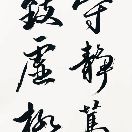 守静篤
致虛極